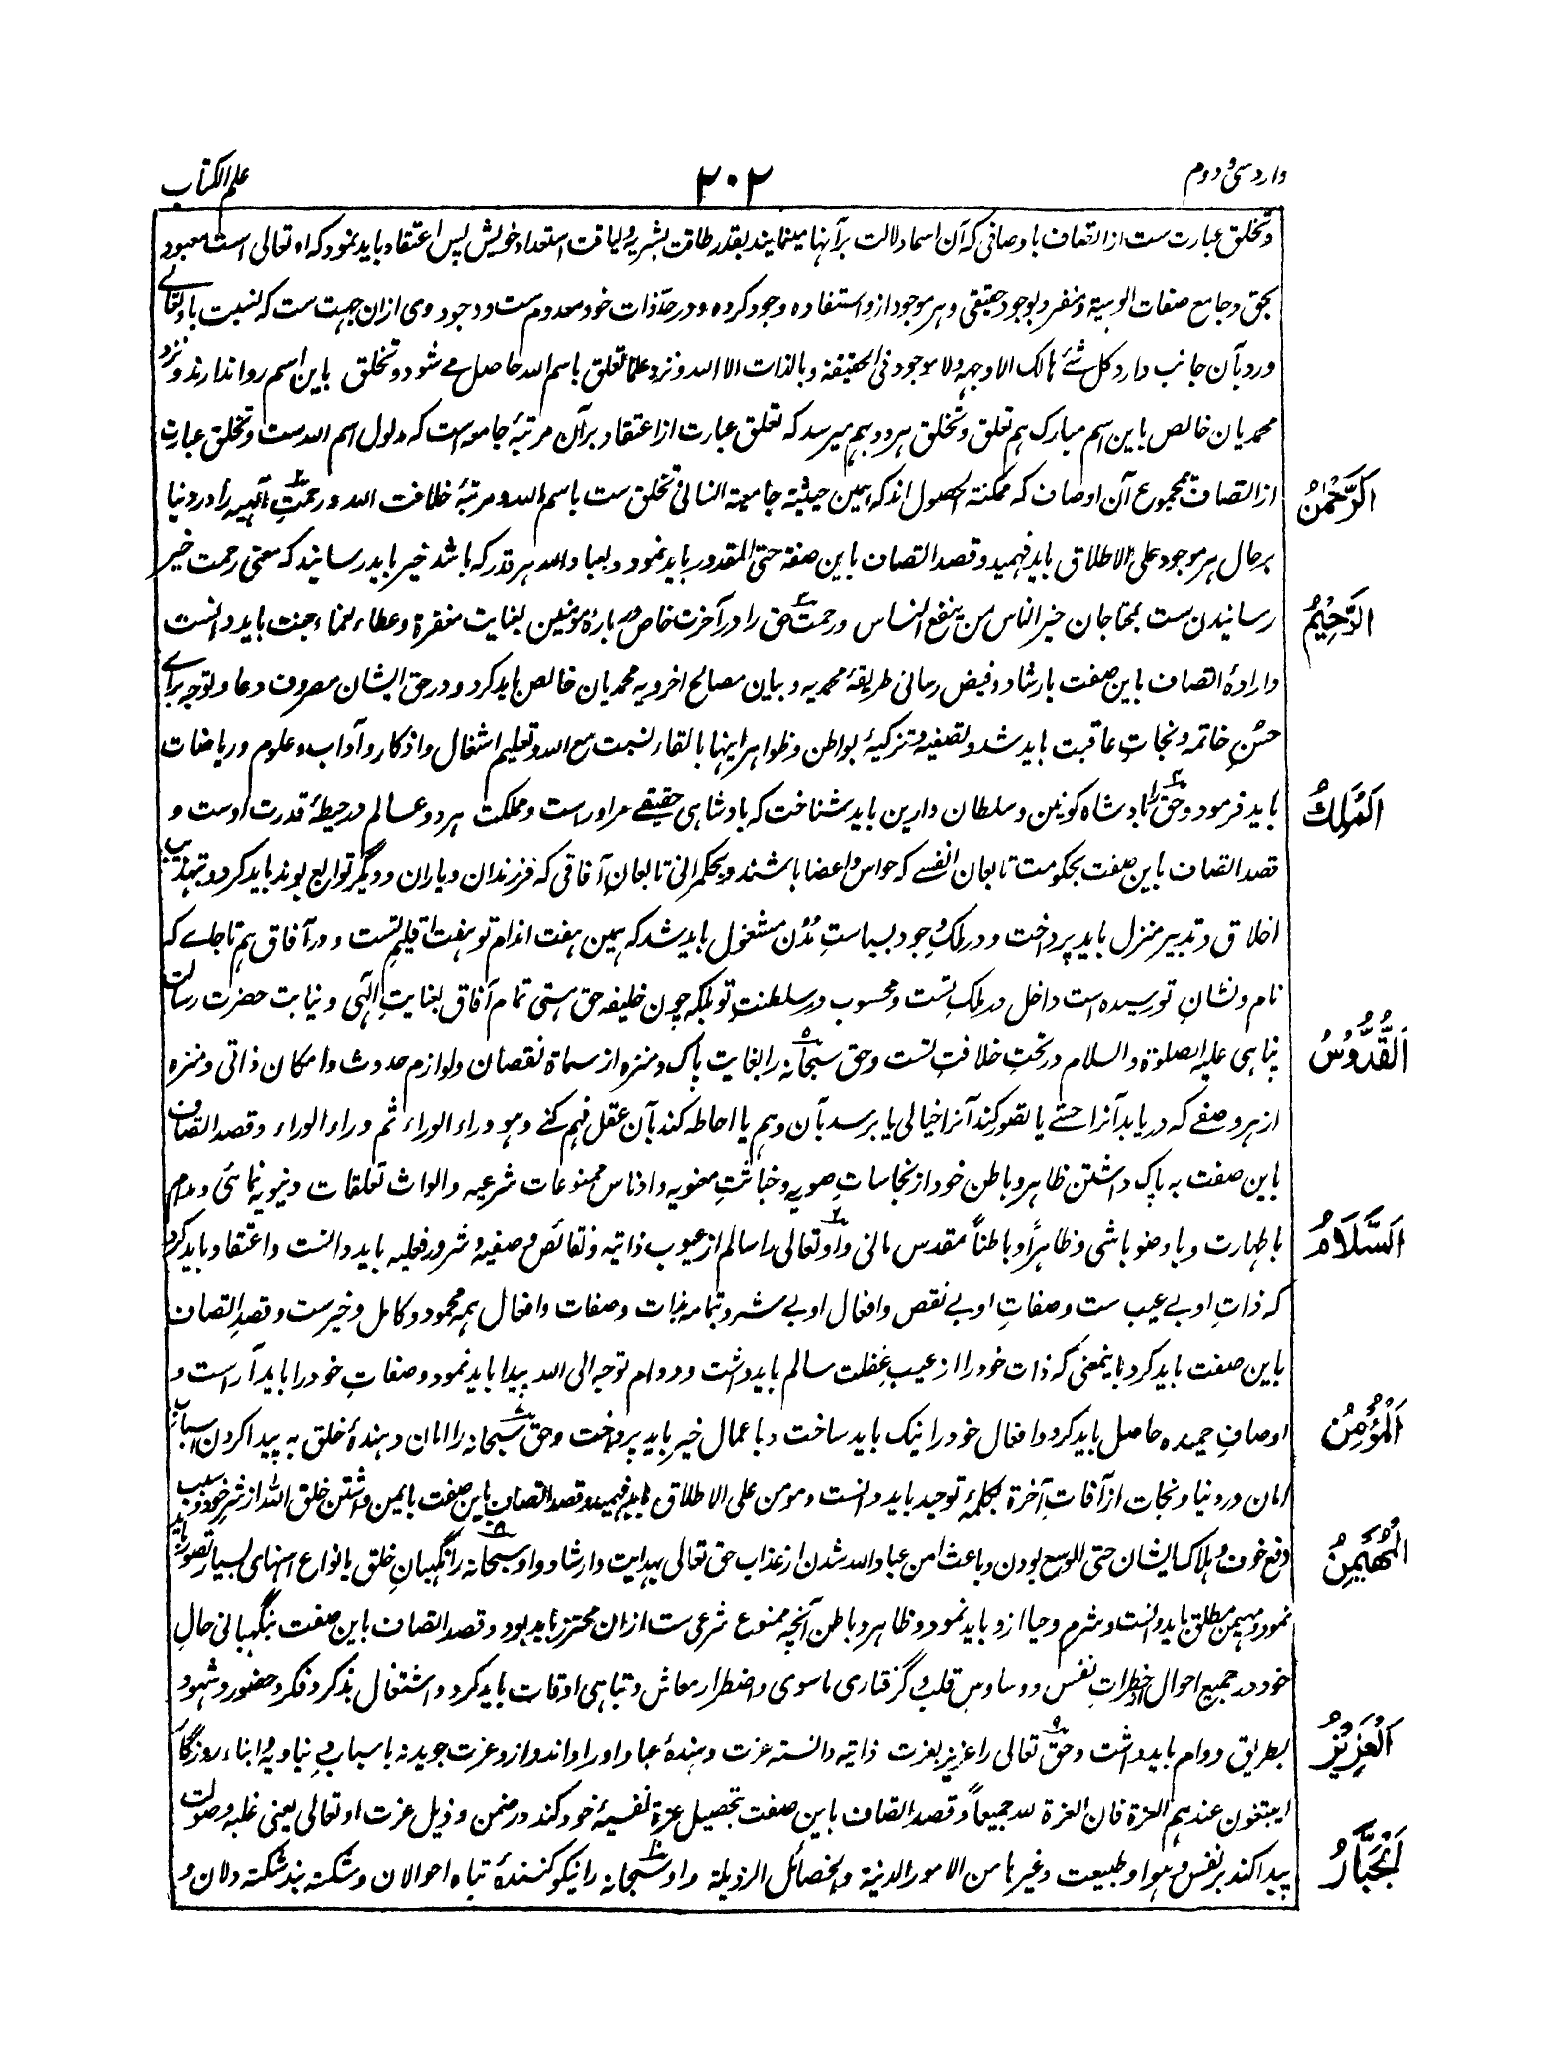 وارد سی و دوم
۲۰۲
علم الکتاب
و تخلق عبارت ست از اتصاف باوصافی که آن اسما دلالت بر آنها مینمایند بقدر طاقت بشریه و لیاقت استعداد خویش پس اعتقاد باید نمود که او تعالی است معبود
بحق و جامع صفات الوہیة و منفرد بوجود حقیقی و ہر موجود ازو استفاده وجود کرده و در حد ذات خود معدوم ست و وجود وی ازان جہت ست که نسبت باو تعالے
و رو بآن جانب دارد کل شئے ہالک الا وجہہ ولا موجود فی الحقیقة و بالذات الا الله و نزد علما تعلق باسم الله حاصل مے شود و تخلق باین اسم روا ندارند و نزد
محمدیان خالص باین اسم مبارک ہم تعلق و تخلق ہر دو بہم میرسد که تعلق عبارت از اعتقاد بر آن مرتبۂ جامعه است که مدلول اسم الله ست و تخلق عبارت
از اتصاف بمجموع آن اوصاف که ممکنة الحصول اند که ہمین حیثیة جامعیة انسانی تخلق ست باسم الله و مرتبۂ خلافت الله و رحمتِ الٓہیه را در دنیا
اَلرَّحْمٰنُ
بر حال ہر موجود علی الاطلاق باید فہمید و قصد اتصاف باین صفة حتی المقدور باید نمود و بعباد الله ہر قدر که باشد خیر باید رسانید که معنی رحمت خیر
رسانیدن ست بمحتاجان خیر الناس من ینفع الناس و رحمت حق را در آخرت خاص در بارۂ مومنین بعنایت مغفرة و عطاء نعماء جنت باید دانست
اَلرَّحِیْمُ
و ارادۂ اتصاف باین صفت بارشاد و فیض رسانی طریقۂ محمدیه و بیان مصالح اخرویه محمدیان خالص باید کرد و در حق ایشان مصروف دعا و توجه براے
حسُنِ خاتمه و نجاتِ عاقبت باید شد و تصفیه و تزکیۂ بواطن و ظواہر اینہا بالقاء نسبت مع الله و تعلیم اشغال و اذکار و آداب و علوم و ریاضات
باید فرمود و حق را بادشاه کونین و سلطان دارین باید شناخت که بادشاہی حقیقے مر اوراست و مملکت ہر دو عالم در حیطۂ قدرت اوست و
اَلْمَلِكُ
قصد اتصاف باین صفت بحکومت تابعان انفسے که حواس و اعضا باشند و بحکمرانی تابعانِ آفاقی که فرزندان و یاران و دیگر توابع بوند باید کرد و بتہذیب
اخلاق و تدبیر منزل باید پرداخت و در ملکِ وجود بسیاستِ مُدُن مشغول باید شد که ہمین ہفت اندام تو ہفت اقلیم تست و در آفاق ہم تا جاے که
نام و نشانِ تو رسیده است داخل در ملکِ تست و محسوب در سلطنتِ تو بلکه چون خلیفه حق ہستی تمام آفاق بعنایتِ الٓہی و نیابت حضرت رسالت
پناہی علیه الصلوٰة والسلام در تحتِ خلافتِ تست و حق سبحانه را بغایت پاک و منزه از سماة نقصان و لوازم حدوث و امکان ذاتی و منزه
اَلْقُدُّوْسُ
از ہر وصفے که دریابد آنرا حسے یا تصور کند آنرا خیالی یا برسد بآن وہم یا احاطه کند بآن عقل فہم کنے وہو وراء الوراء ثم وراء الوراء و قصد اتصاف
باین صفت به پاک داشتن ظاہر و باطن خود از نجاساتِ صوریه و خباثتِ معنویه و ادناس ممنوعات شرعیه و الواث تعلقات دنیویه نمائی و مدام
باطہارت و باوضو باشی و ظاہراً و باطناً مقدس مانی و او تعالی را سالم از عیوب ذاتیه و نقائص وصفیه و شرور فعلیه باید دانست و اعتقاد باید کرد
اَلسَّلَامُ
که ذاتِ او بے عیب ست و صفاتِ او بے نقص و افعال او بے شر و بتمامه بذات و صفات و افعال ہمه محمود و کامل و خیرست و قصدِ اتصاف
باین صفت باید کرد باینمعنی که ذات خود را از عیب غفلت سالم باید داشت و دوام توجه الی الله پیدا باید نمود و صفاتِ خود را باید آراست و
اوصافِ حمیده حاصل باید کرد و افعال خود را نیک باید ساخت و باعمال خیر باید پرداخت و حق سبحانه را امان دہندۂ خلق به پیدا کردن اسباب
اَلْمُؤْمِنُ
امان در دنیا و نجات از آفاتِ آخرة بکلمۂ توحید باید دانست و مومن علی الاطلاق باید فہمید و قصد اتصاف باین صفت بایمن داشتن خلق الله از شر خود و سبب
دفع خوف و ہلاک ایشان حتی الوسع بودن و باعث امن عباد الله شدن از عذاب حق تعالی بہدایت و ارشاد و او سبحانه را نگہبانِ خلق بانواع امنہای بسیار تصور باید
اَلْمُهَیْمِنُ
نمود و مہیمن مطلق باید دانست و شرم و حیا ازو باید نمود و ظاہر و باطن آنچه ممنوع شرعی ست ازان محترز باید بود و قصد اتصاف باین صفت بنگہبانی حالِ
خود در جمیع احوال از خطراتِ نفس و وساوسِ قلب و گرفتاری ماسوی و اضطرار معاش و تباہی اوقات باید کرد و اشتغال بذکر و فکر و حضور و شہود
بطریق دوام باید داشت و حق تعالی را عزیز بعزت ذاتیه دانسته عزت دہندۂ عباد اورا داند و ازو عزت جوید نه باسباب دنیاویه و ابناء روزگار
اَلْعَزِیْزُ
ایبتغون عندہم العزة فان العزة لله جمیعاً و قصد اتصاف باین صفت بتحصیل عزة نفسیۂ خود کند در ضمن و ذیل عزت او تعالی یعنی غلبه و صولت
پیدا کند بر نفس و ہوا و طبیعت و غیرہا من الامور الدنیة والخصائل الرذیلة و او سبحانه را نیکو کنندۂ تباه احوالان و شکسته بند شکسته دلان و
اَلْجَبَّارُ